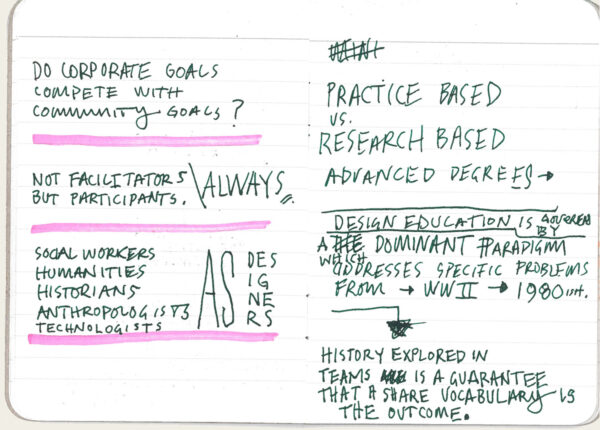 DO CORPORATE GOALS
COMPETE WITH
COMMUNITY GOALS?
NOT FACILITATORS
BUT PARTICIPANTS.
ALWAYS
SOCIAL WORKERS
HUMANITIES
HISTORIANS
ANTHROPOLOGISTS
TECHNOLOGISTS
AS
DES
IG
NE
RS
PRACTICE BASED
VS.
RESEARCH BASED
ADVANCED DEGREES →
DESIGN EDUCATION IS GOVERNED
BY
A DOMINANT PARADIGM
WHICH
ADDRESSES SPECIFIC PROBLEMS
FROM → WW II → 1980ish.
HISTORY EXPLORED IN
TEAMS IS A GUARANTEE
THAT A SHARE VOCABULARY IS
THE OUTCOME.